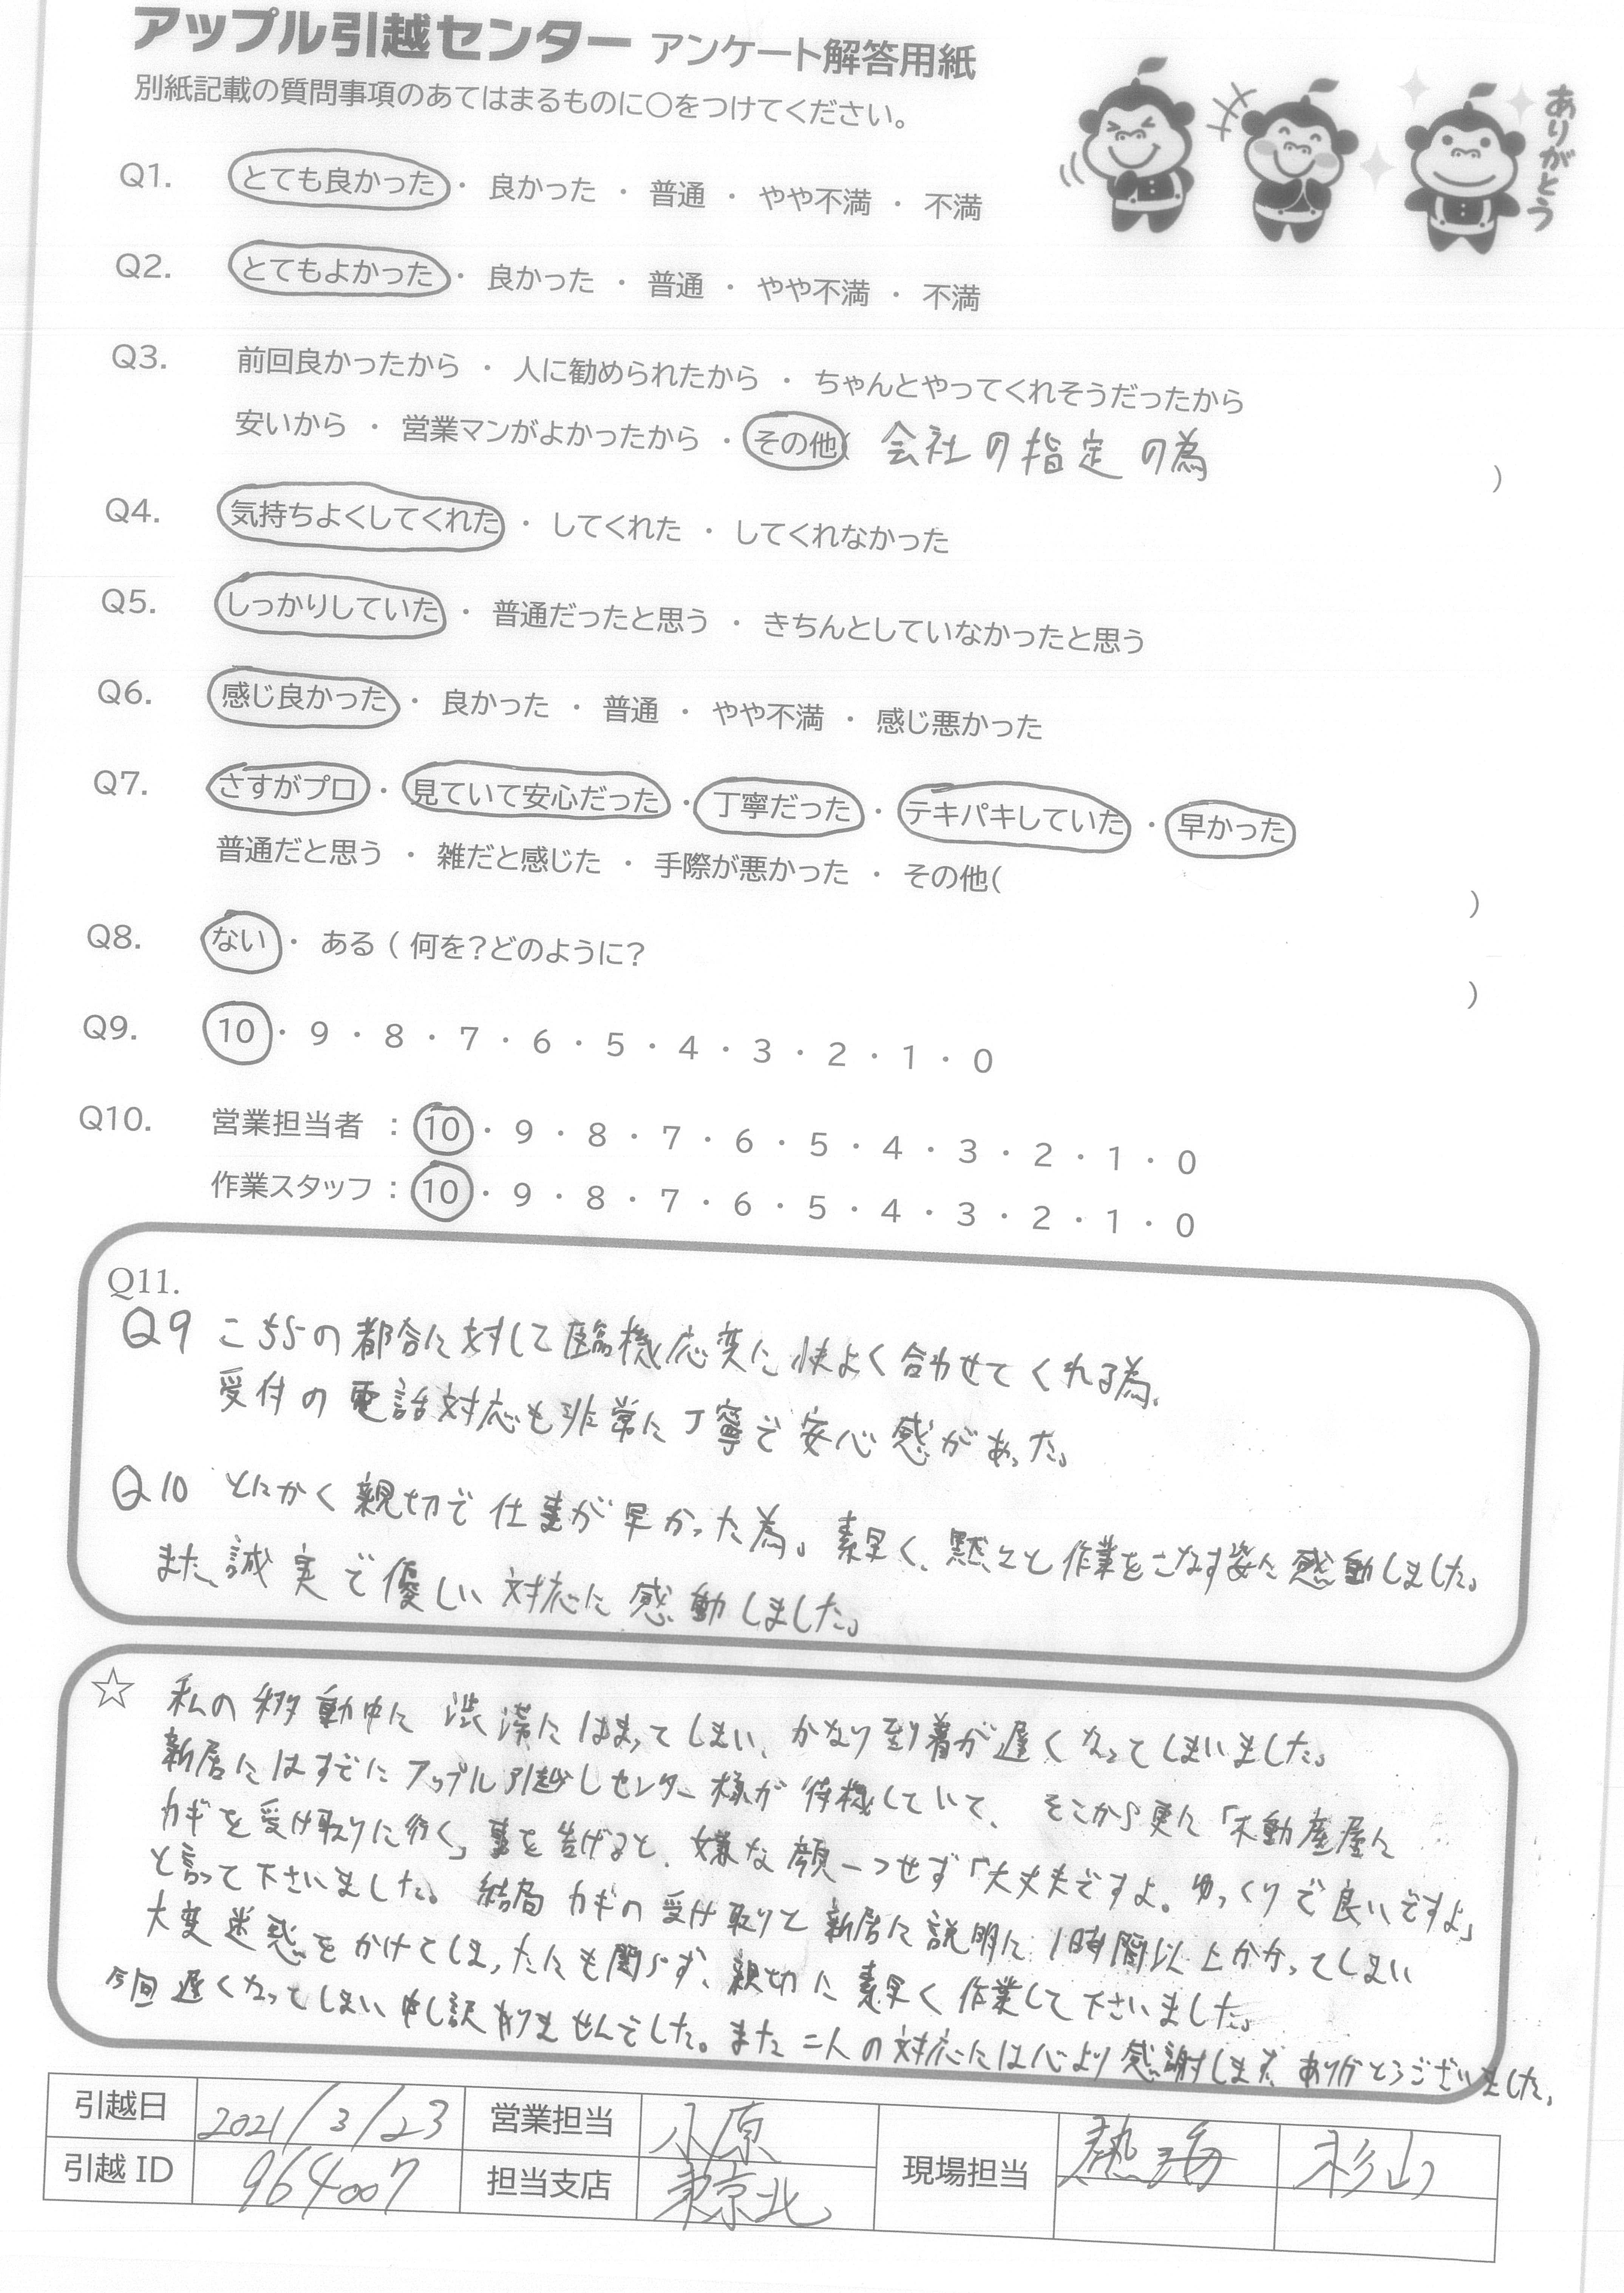 アップル引越センター アンケート解答用紙
別紙記載の質問事項のあてはまるものに○をつけてください。
ありがとう
Q1. とても良かった ・ 良かった ・ 普通 ・ やや不満 ・ 不満
Q2. とてもよかった ・ 良かった ・ 普通 ・ やや不満 ・ 不満
Q3. 前回良かったから ・ 人に勧められたから ・ ちゃんとやってくれそうだったから
安いから ・ 営業マンがよかったから ・ その他( 会社の指定の為 )
Q4. 気持ちよくしてくれた ・ してくれた ・ してくれなかった
Q5. しっかりしていた ・ 普通だったと思う ・ きちんとしていなかったと思う
Q6. 感じ良かった ・ 良かった ・ 普通 ・ やや不満 ・ 感じ悪かった
Q7. さすがプロ ・ 見ていて安心だった ・ 丁寧だった ・ テキパキしていた ・ 早かった
普通だと思う ・ 雑だと感じた ・ 手際が悪かった ・ その他( )
Q8. ない ・ ある ( 何を?どのように? )
Q9. 10 ・ 9 ・ 8 ・ 7 ・ 6 ・ 5 ・ 4 ・ 3 ・ 2 ・ 1 ・ 0
Q10. 営業担当者 : 10 ・ 9 ・ 8 ・ 7 ・ 6 ・ 5 ・ 4 ・ 3 ・ 2 ・ 1 ・ 0
作業スタッフ : 10 ・ 9 ・ 8 ・ 7 ・ 6 ・ 5 ・ 4 ・ 3 ・ 2 ・ 1 ・ 0
Q11.
Q9 こちらの都合に対して臨機応変に快よく合わせてくれる為、
受付の電話対応も非常に丁寧で安心感があった。
Q10 とにかく親切で仕事が早かった為。素早く、黙々と作業をこなす姿に感動しました。
また、誠実で優しい対応に感動しました。
☆ 私の移動中に渋滞にはまってしまい、かなり到着が遅くなってしまいました。
新居にはすでにアップル引越しセンター様が待機していて、そこから更に「不動産屋に
カギを受け取りに行く」事を告げると、嫌な顔一つせず「大丈夫ですよ。ゆっくりで良いですよ」
と言って下さいました。結局カギの受け取りと新居に説明に1時間以上かかってしまい
大変迷惑をかけてしまったにも関らず、親切に素早く作業して下さいました。
今回遅くなってしまい申し訳ありませんでした。また二人の対応には心より感謝します。ありがとうございました。
引越日 2021/3/23 営業担当 小原 現場担当 熱海 杉山
引越ID 964007 担当支店 東京北